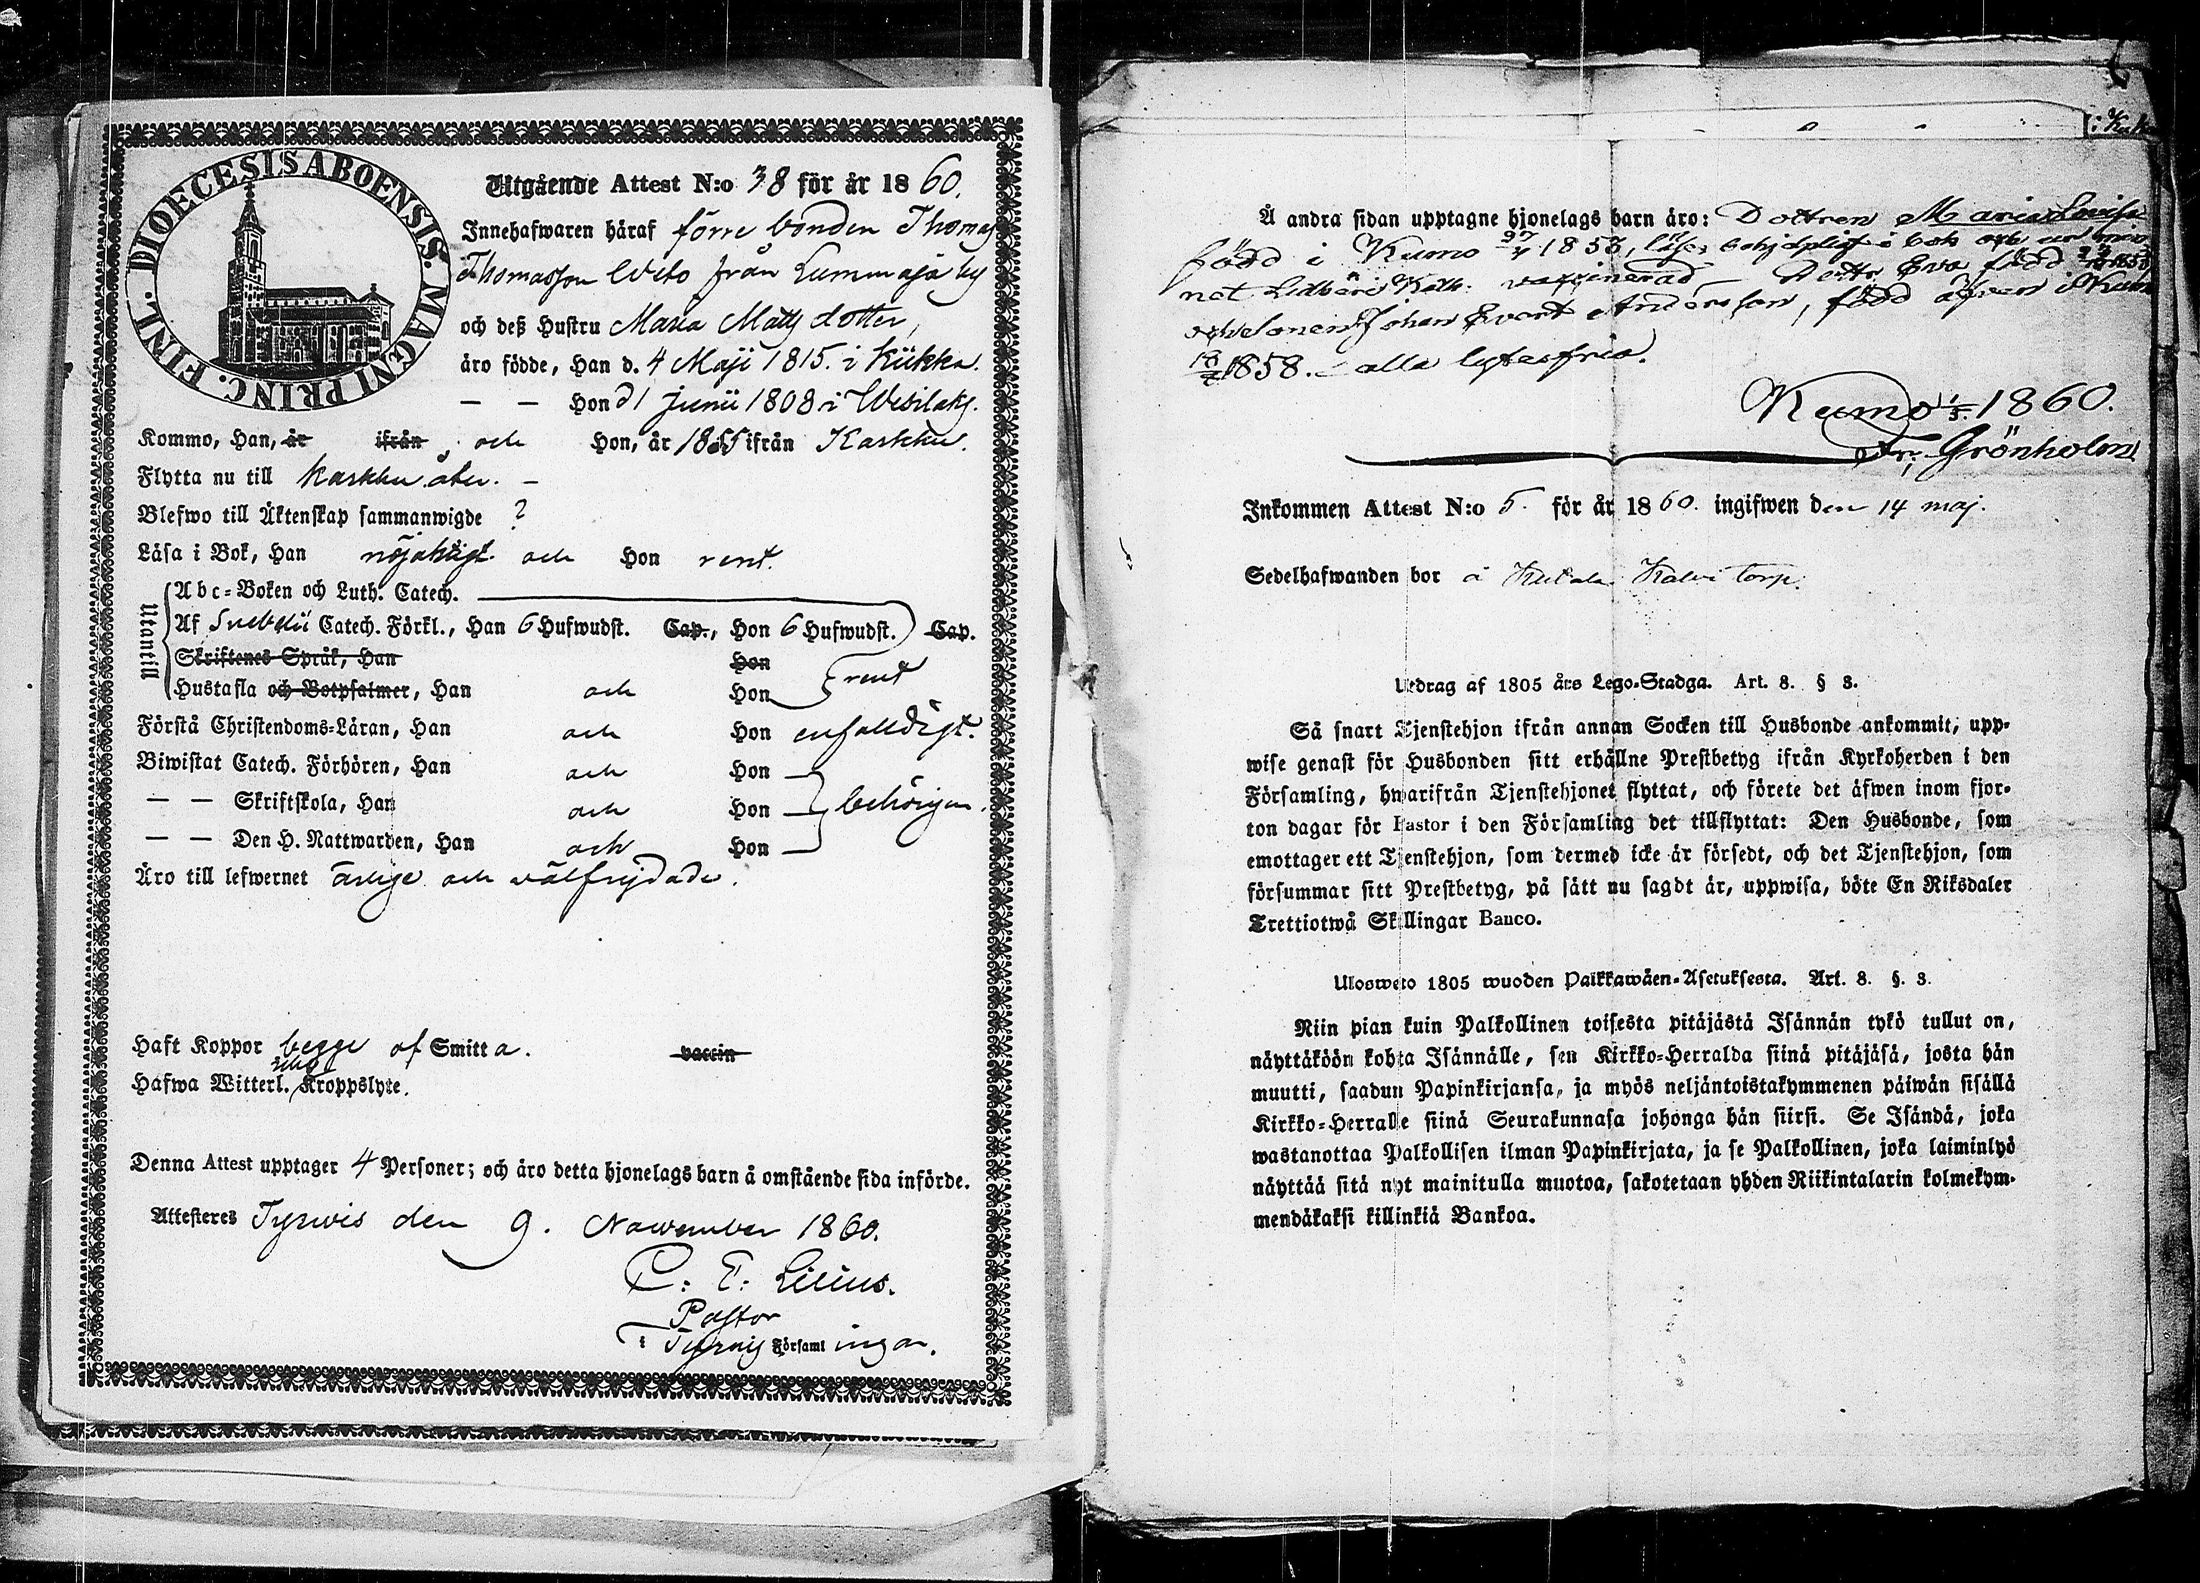 DIOECESIS ABOENSIS. MAGNI PRINC. FINL.
Utgående Attest N:o 38 för år 1860.
Innehafwaren häraf förre bonden Thomas
Thomasson Weto från Lummaja by
och deß Hustru Maria Matts dotter,
äro födde, Han d. 4 Maji 1815. i Kiikka.
— — Hon d 1 Junii 1808 i Wesilaks.
Kommo, Han, år ifrån och Hon, år 1855 ifrån Karkku.
Flytta nu till Karkku åter. —
Blefwo till Äktenskap sammanwigde ?
Läsa i Bok, Han nöjaktigt och Hon rent.
Utantill
Abc-Boken och Luth. Catech.
Af Svebelii Catech. Förkl., Han 6 Hufwudst. Cap., Hon 6 Hufwudst. Cap.
Skriftenes Språk, Han Hon
Hustafla och Botpsalmer, Han och Hon rent
Förstå Christendoms-Läran, Han och Hon enfalldigt.
Biwistat Catech. Förhören, Han och Hon
— — Skriftskola, Han och Hon behörigen.
— — Den H. Nattwarden, Han och Hon
Äro till lefwernet ärlige och välfrejdade.
Haft Koppor begge af Smitta. vaccin
Hafwa Witterl. Kroppslyte.
Denna Attest upptager 4 Personer; och äro detta hjonelags barn å omstående sida införde.
Attesteres Tyrwis den 9. November 1860.
C: F: Lilius.
Pastor
i Tyrvis Församlingar.
Å andra sidan upptagne hjonelags barn äro: Dottren Maria Lovisa
född i Kumo 27/4 1853, bok och
vaccinerad Dottr Eva född
och Sonen Johan Evert Andersson, född äfven i Kumo
1858. alla lytesfria.
Kumo 1/5 1860.
Fr: Grönholm
Inkommen Attest N:o 5. för år 1860. ingifwen den 14 maj.
Sedelhafwanden bor å Kukola Kalvi torp.
Utdrag af 1805 års Lego-Stadga. Art. 8. § 3.
Så snart Tjenstehjon ifrån annan Socken till Husbonde ankommit, upp-
wise genast för Husbonden sitt erhållne Prestbetyg ifrån Kyrkoherden i den
Församling, hwarifrån Tjenstehjonet flyttat, och förete det äfwen inom fjor-
ton dagar för Pastor i den Församling det tillflyttat: Den Husbonde, som
emottager ett Tjenstehjon, som dermed icke är försedt, och det Tjenstehjon, som
försummar sitt Prestbetyg, på sätt nu sagdt är, uppwisa, böte En Riksdaler
Trettiotwå Skillingar Banco.
Ulosweto 1805 wuoden Palkkawäen-Asetuksesta. Art. 8. §. 3.
Niin pian kuin Palkollinen toisesta pitäjästä Isännän tykö tullut on,
näyttäköön kohta Isännälle, sen Kirkko-Herralda siinä pitäjäsä, josta hän
muutti, saadun Papinkirjansa, ja myös neljäntoistakymmenen päiwän sisällä
Kirkko-Herralle siinä Seurakunnasa johonga hän siirsi. Se Isändä, joka
wastanottaa Palkollisen ilman Papinkirjata, ja se Palkollinen, joka laiminlyö
näyttää sitä nyt mainitulla muotoa, sakotetaan yhden Riikintalarin kolmekym-
mendäkaksi killinkiä Bankoa.